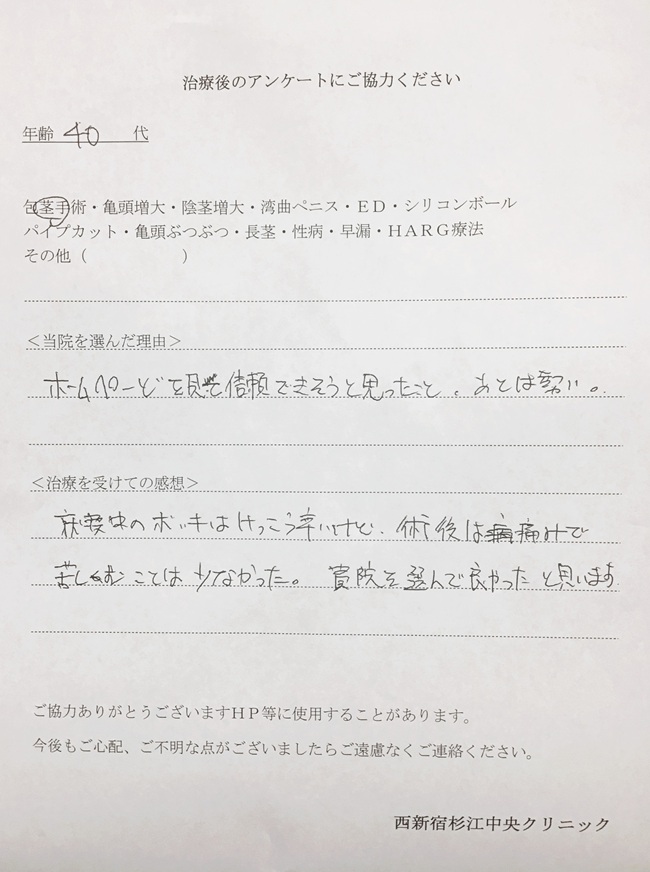 治療後のアンケートにご協力ください
年齢 40 代
包茎手術・亀頭増大・陰茎増大・湾曲ペニス・ED・シリコンボール
パイプカット・亀頭ぶつぶつ・長茎・性病・早漏・HARG療法
その他（　　　　　　）
＜当院を選んだ理由＞
ホームページを見て信頼できそうと思ったこと。あとは勢い。
＜治療を受けての感想＞
就寝中のボッキはけっこう辛いけど、術後は痛みで
苦しむことは少なかった。貴院を選んで良かったと思います
ご協力ありがとうございますHP等に使用することがあります。
今後もご心配、ご不明な点がございましたらご遠慮なくご連絡ください。
西新宿杉江中央クリニック